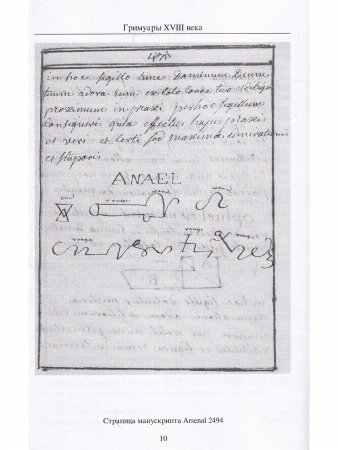 Гримуары XVIII века
in hoc sigillo time Dominum Deum
tuum adora eum ex toto corde tuo et dilige
proximum in praxi per hoc sigillum
Consequeris quia effectus hujus praxis
et veri et Certi sed maxima admirationis
et stuporis
ANAEL
Страница манускрипта Arsenal 2494
10